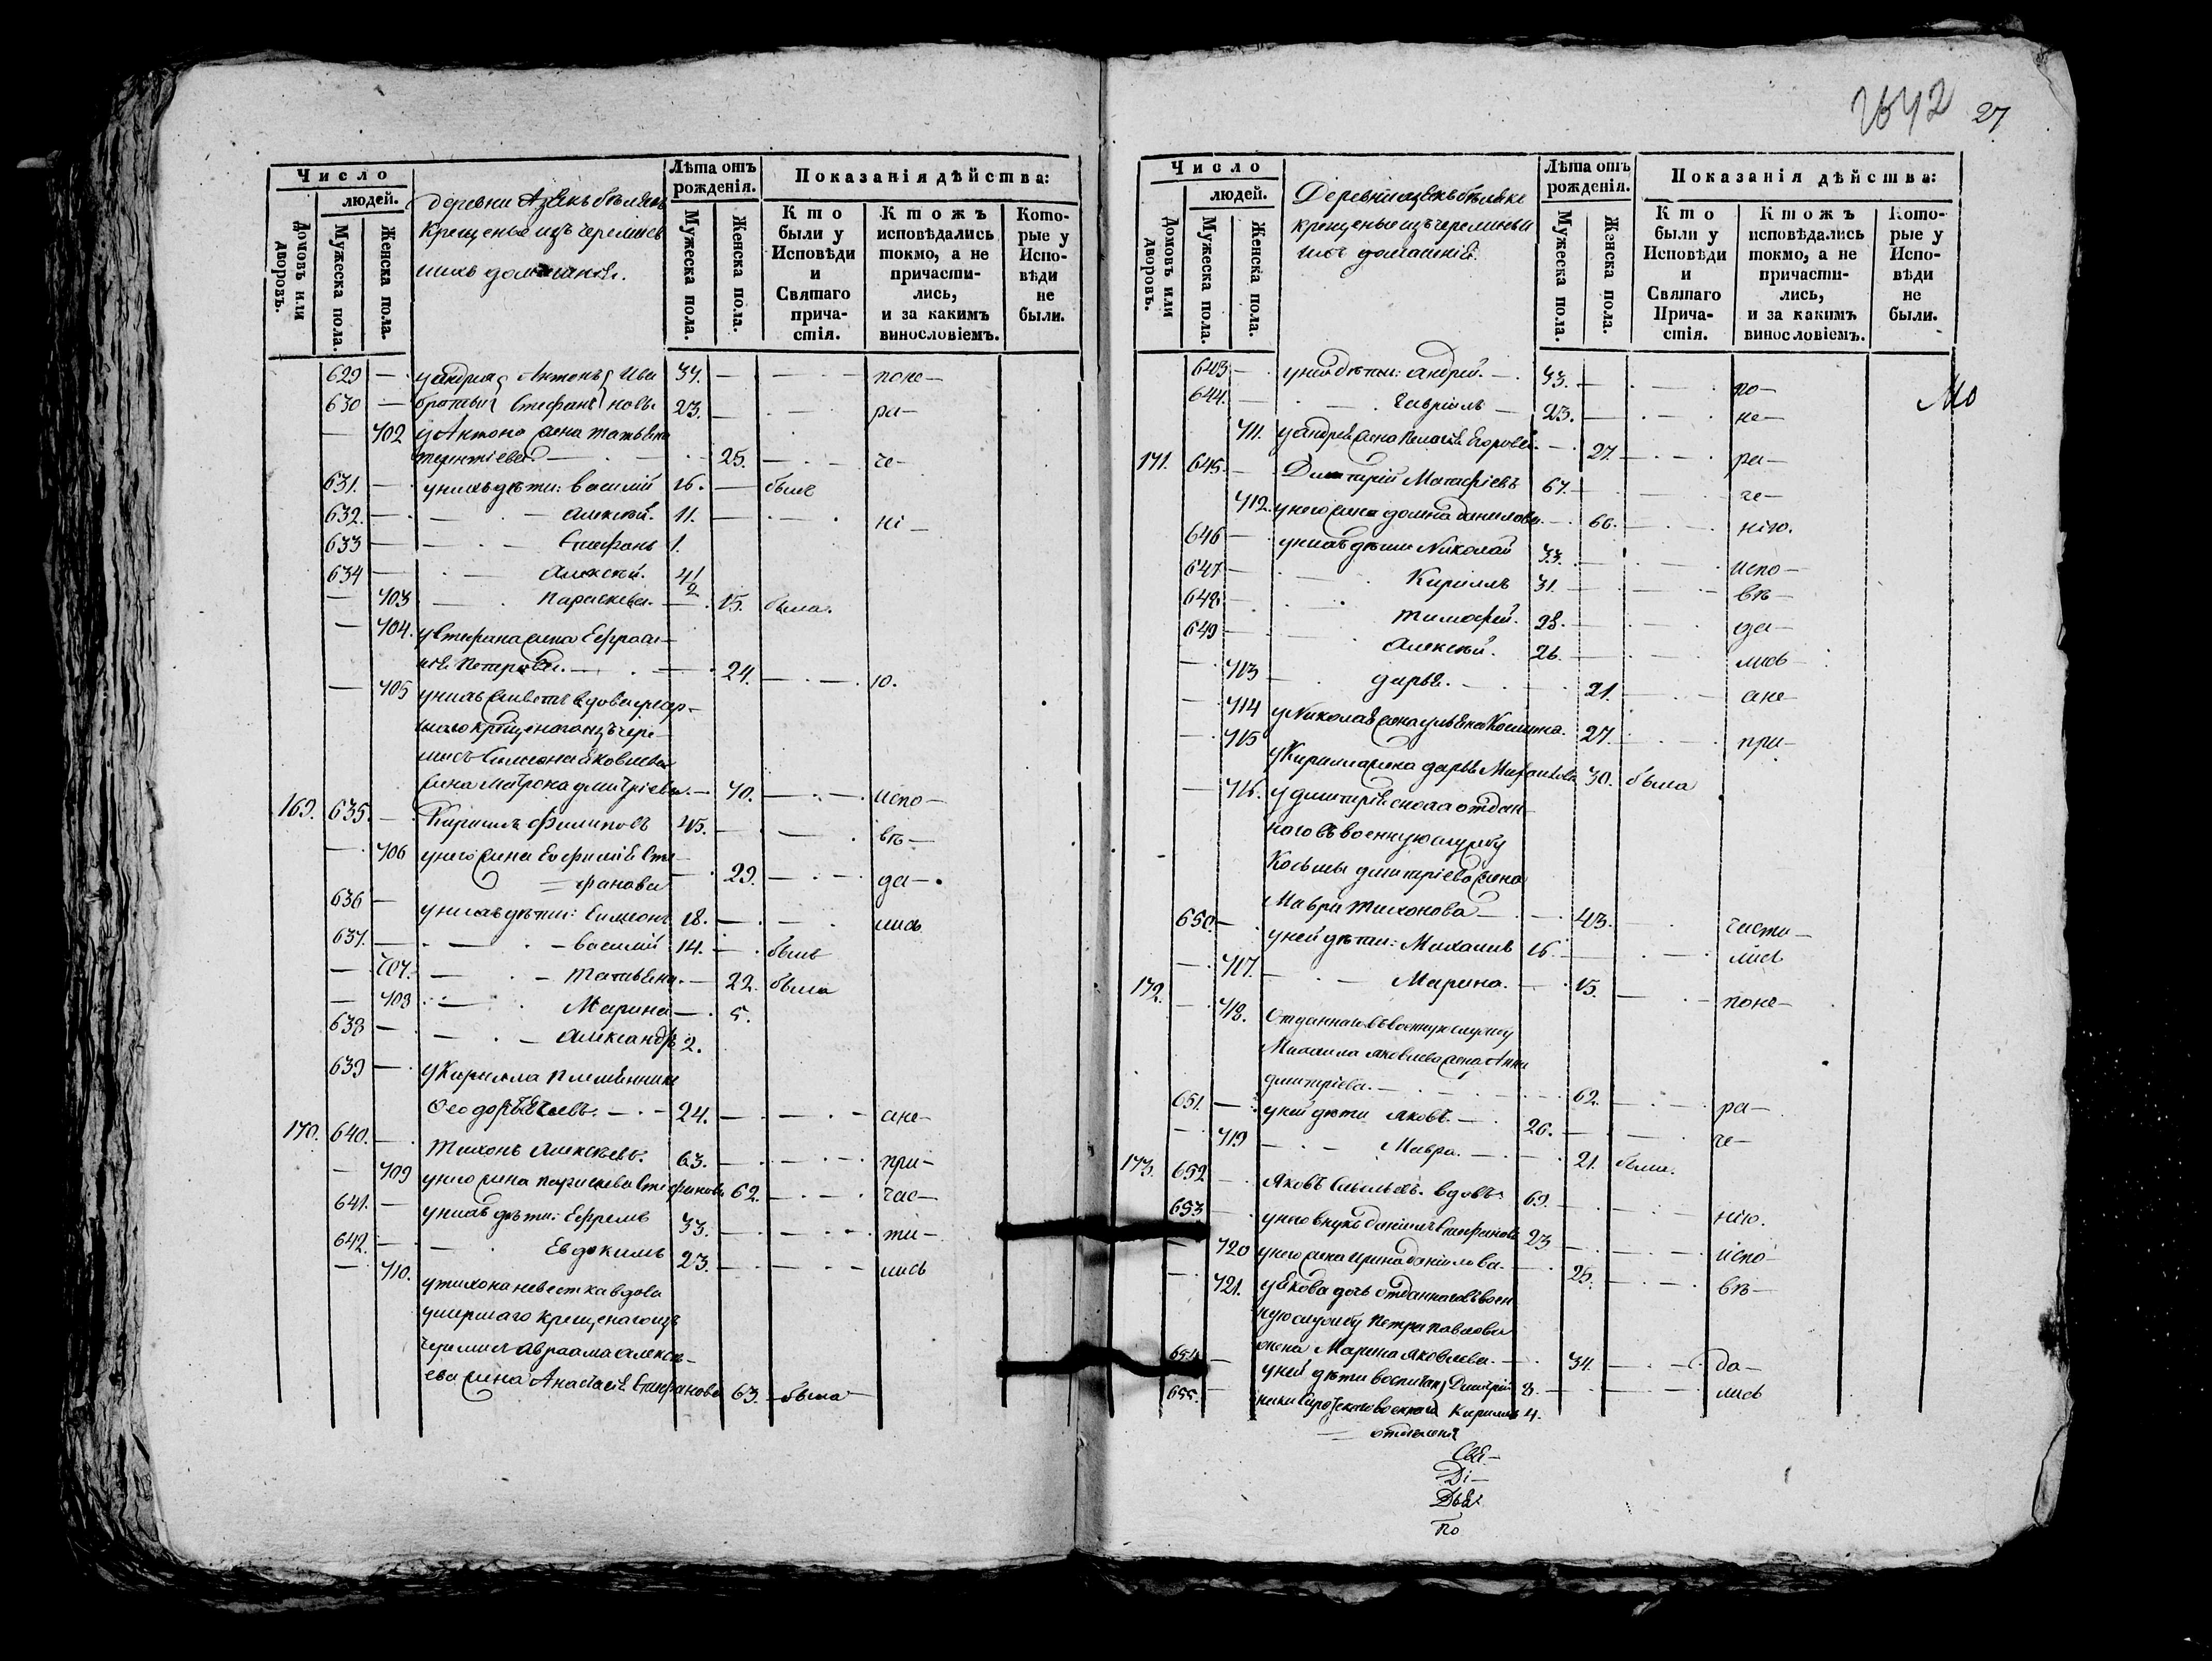 2642 27
Число
людей.
Домовъ или дворовъ.
Мужеска пола.
Женска пола.
деревни
крещеные изъ черемисъ
ихъ домашніе.
Лѣта отъ рожденія.
Мужеска пола.
Женска пола.
Показанія дѣйства:
Кто были у Исповѣди и Святаго причастія.
Ктожъ исповѣдались токмо, а не причастились, и за какимъ винословіемъ.
Которые у Исповѣди не были.
629 — у андрея Антонъ Ива 37. — поне—
630 — братья Стефанъ новы 23. — ра—
— 702 у Антона жена татьяна
терентіева. — 25. — че—
631. — у нихъ дѣти: василий 16. — былъ
632. — алексѣй. 11. — нi—
633 — Стефанъ 1.
634 — алексѣй. 4/2
— 703 — параскева. — 15. была.
— 704. у Стефана жена Ефроси—
нія Петрова. — 24. — ю.
— 705 у нихъ вдова умер—
шаго крещенаго изъ чере—
мисъ Симеона яковлева
жена матрона дмитріева. — 70. — испо—
169. 635. — Кирилъ Филиповъ 45. — вѣ—
— 706 у него жена Евфимія Сте—
фанова — 29. — да—
636 — у нихъ дѣти: Симеонъ 18. — лись
637. — василий 14. — былъ
— 707. — татьяна. — 22. была
— 708 — Марина — 5.
638 — александръ 2.
639 — у Кирилла племянникъ
Ѳеодоръ — 24. — ане—
170. 640. — Тихонъ алексѣевъ. 63. — при—
— 709 у него жена параскева Стефанова 62. — час—
641. — у нихъ дѣти: Ефремъ 33. — ти—
642. — Евдокимъ 23. — лись
— 710. у тихона невестка вдова
умершаго крещенаго изъ
черемисъ авраама алексѣ—
ева жена Анастасія Стефанова 63. — была
Число
людей.
Домовъ или дворовъ.
Мужеска пола.
Женска пола.
Деревни
крещеные изъ черемисъ и
ихъ домашніе.
Лѣта отъ рожденія.
Мужеска пола.
Женска пола.
Показанія дѣйства:
Кто были у Исповѣди и Святаго Причастія.
Ктожъ исповѣдались токмо, а не причастились, и за какимъ винословіемъ.
Которые у Исповѣди не были.
643 — у ней дѣти: андрей. — 33. — по—
644. — Гавріилъ — 23. — не—
711. у андрея жена Пелагія Егорова. — 27. — ра—
171. 645. — Димитрій Матвѣевъ 67. — че—
712. у него жена домна данилова. — 66. — нію.
646 — у нихъ дѣти Николай 33. — испо—
647 — Кирилъ 31. — вѣ—
648 — тимофей. 28. — да—
649 — алексѣй. 26. — лись—
— 713 — дарья. — 21. — ане—
— 714 у Николая жена ульяна Козмина. 27. — при—
— 715 у Кирилла жена дарья Михайлова 30. была
— 716. у димитрія сноха отдан—
наго въ военную службу
Косьмы дмитріева жена
Мавра тихонова — 43. — части—
650. — у ней дѣти: Михаилъ 16. — лись
— 717. — Марина. — 15. — поне—
172. — 718. Отданнаго въ военную службу
Михаила яковлева жена Анна
дмитріева. — 62. — ра—
651. — у ней дѣти яковъ. — 26. — че—
— 719 — Мавра. — 21. была.
173. 652 — яковъ вдовъ 69. — нію.
653 — у него внукъ даниилъ Стефановъ 23 — испо—
— 720 у него жена ирина данилова. — 25. — вѣ—
— 721. у якова дочь отданнаго въ воен
ную службу Петра Павлова
жена Марина яковлева. — 34. — да—
654. — у ней дѣти воспитан Димитрій 8. — лись
655. — ники Сиротскаго военнаго Кирилъ 4.
отделенія
Свя—
Ді—
Дья
По
Мо